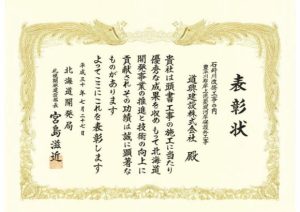 表彰状
石狩川改修工事の内
道興建設株式会社 殿
貴社は頭書工事の施工に当たり
優秀な成果を収めもって北海道
開発事業の推進と技術の向上に
貢献されその功績は誠に顕著な
ものがあります
よってここにこれを表彰します
平成三十年七月二十七日
北海道開発局
札幌開発建設部長
宮島滋近